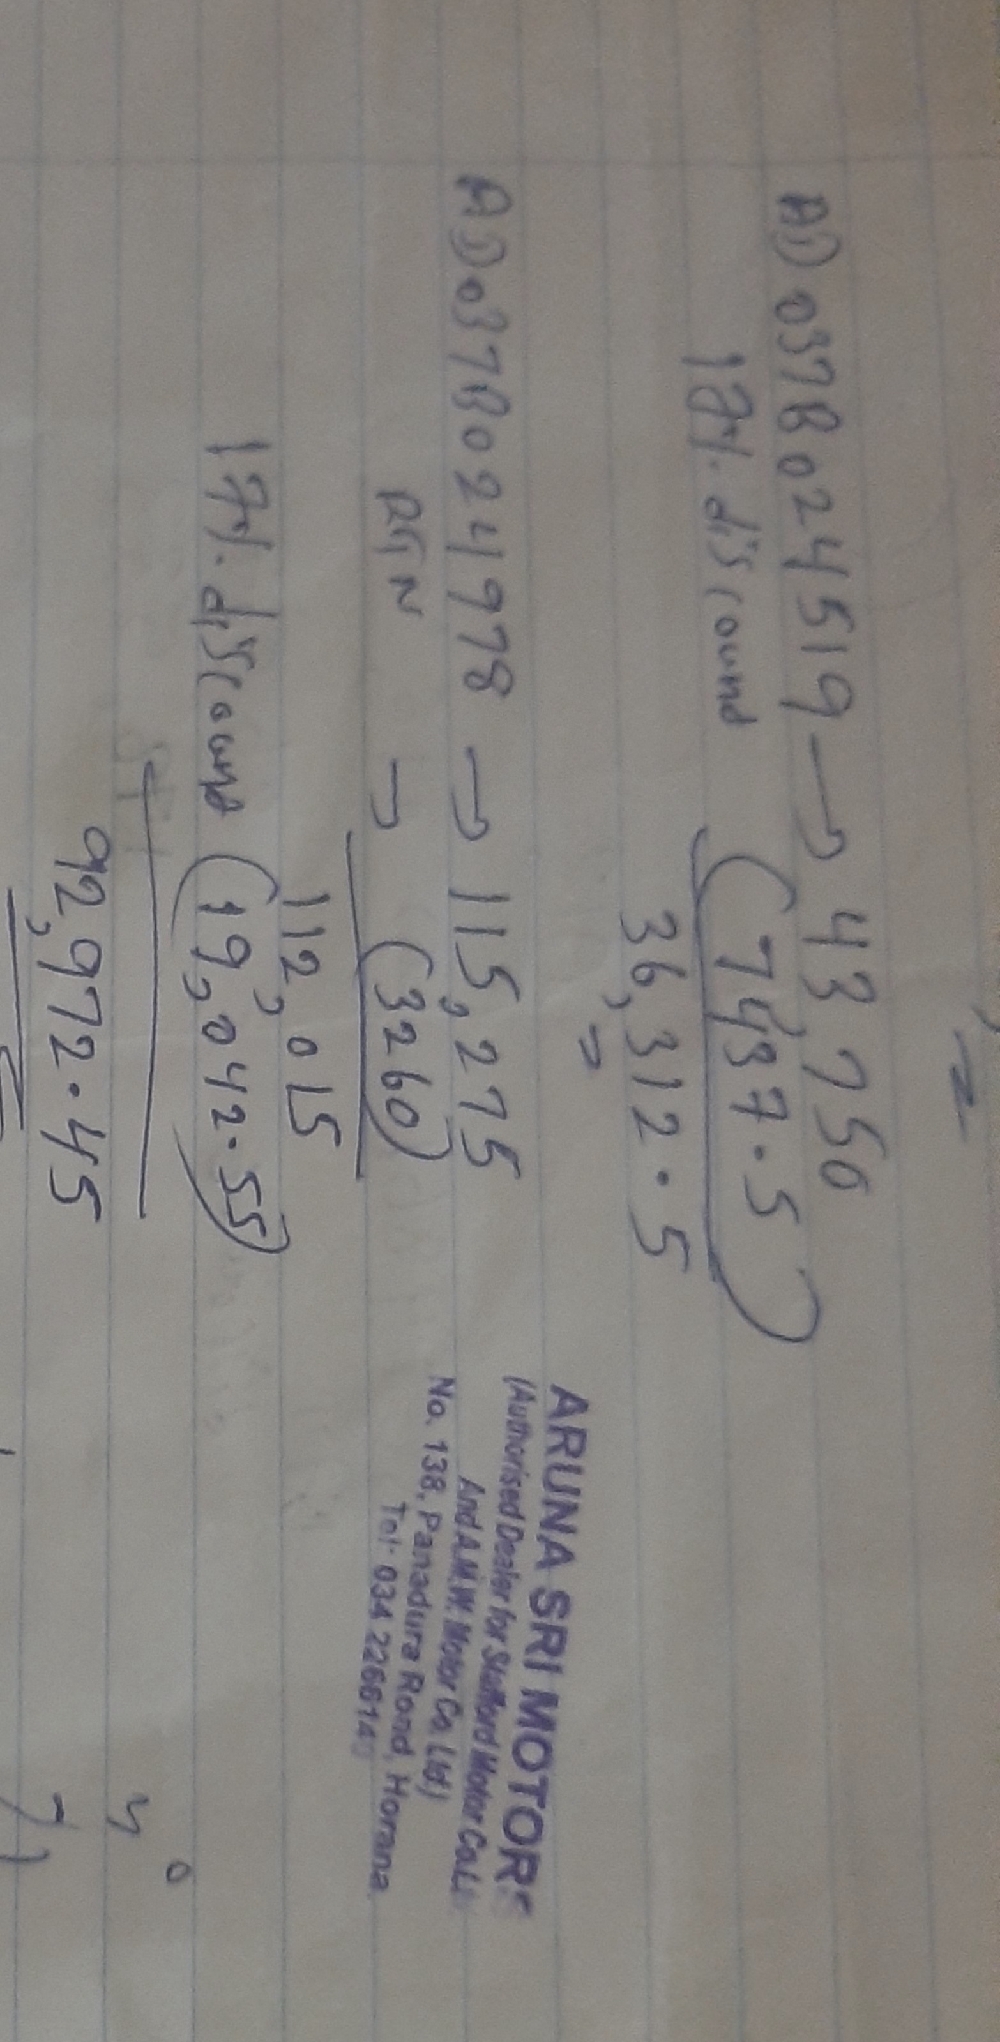 AD037B024519 → 43,750
17%. discound (7437.5)
36,312.5
AD037B024978 → 115,275
RTN → (3260)
112,015
17%. discound (19,042.55)
92,972.45
ARUNA SRI MOTORS
(Authorised Dealer for Stafford Motor Co.Lt
And A.M.W. Motor Co. Ltd)
No. 138, Panadura Road, Horana
Tel: 034 226614